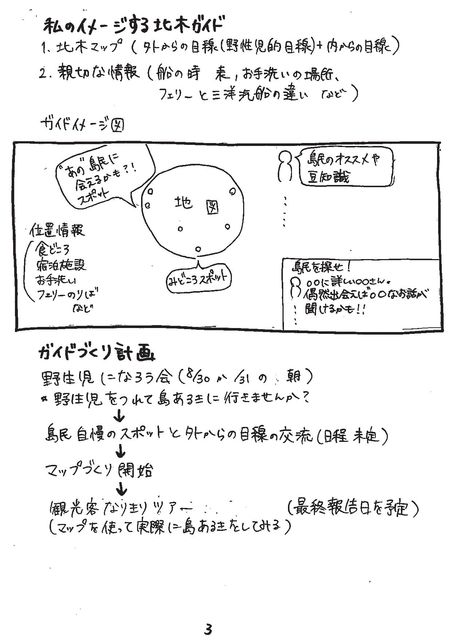 私のイメージする北木ガイド
1. 北木マップ (外からの目線(野性児的目線)+内からの目線)
2. 親切な情報 (船の時 表, お手洗いの場所、
フェリーと三洋汽船の違い など)
ガイドイメージ図
"あの"島民に
会えるかも?!
スポット
地 図
みどころスポット
島民のオススメや
豆知識
位置情報
食どころ
宿泊施設
お手洗い
フェリーのりば
など
島民を探せ!
〇〇に詳しい〇〇さん。
偶然出会えば〇〇なお話が
聞けるかも!!
ガイドづくり計画
野性児になろう会 (8/30か/31の 朝)
* 野性児をつれて島あるきに行きませんか?
↓
島民自慢のスポットと外からの目線の交流 (日程 未定)
↓
マップづくり開始
↓
観光客なりきりツアー (最終報告日を予定)
(マップを使って実際に島あるきをしてみる)
3